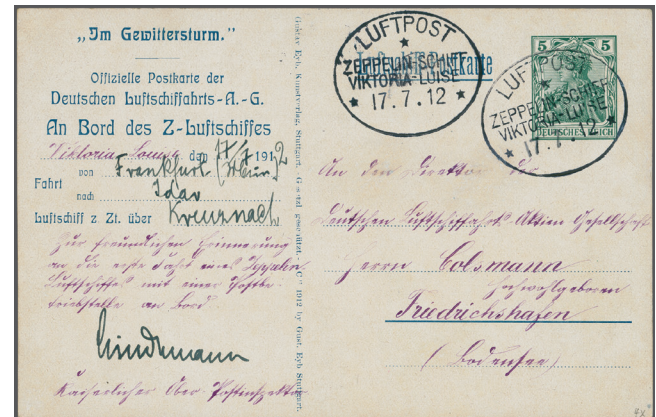 „Im Gewittersturm."
Offizielle Postkarte der
Deutschen Luftschiffahrts-A.-G.
An Bord des Z-Luftschiffes
Viktoria Louise, den 17/7 1912
von Frankfurt (Main)
Fahrt
nach Idar
Luftschiff z Zt. über Kreuznach
Zur freundlichen Erinnerung
an die erste Fahrt eines Zeppelin
Luftschiffes mit einer Postbe-
triebsstelle an Bord.
Lindemann
Kaiserlicher Ober-Postinspektor
Gustav Eyb, Kunstverlag, Stuttgart. Gesetzl. geschützt. "C" 1912 by Gust. Eyb Stuttgart.
LUFTPOST
ZEPPELIN-SCHIFF
VIKTORIA-LUISE
* 17.7.12 *
5 5
LUFTPOST
ZEPPELIN-SCHIFF
VIKTORIA-LUISE
* 17.7.12 *
DEUTSCHES REICH
An den Direktor der
Deutschen Luftschiffahrts-Aktien Gesellschaft
Herrn Colsmann
Hochwohlgeboren
Friedrichshafen
(Bodensee)